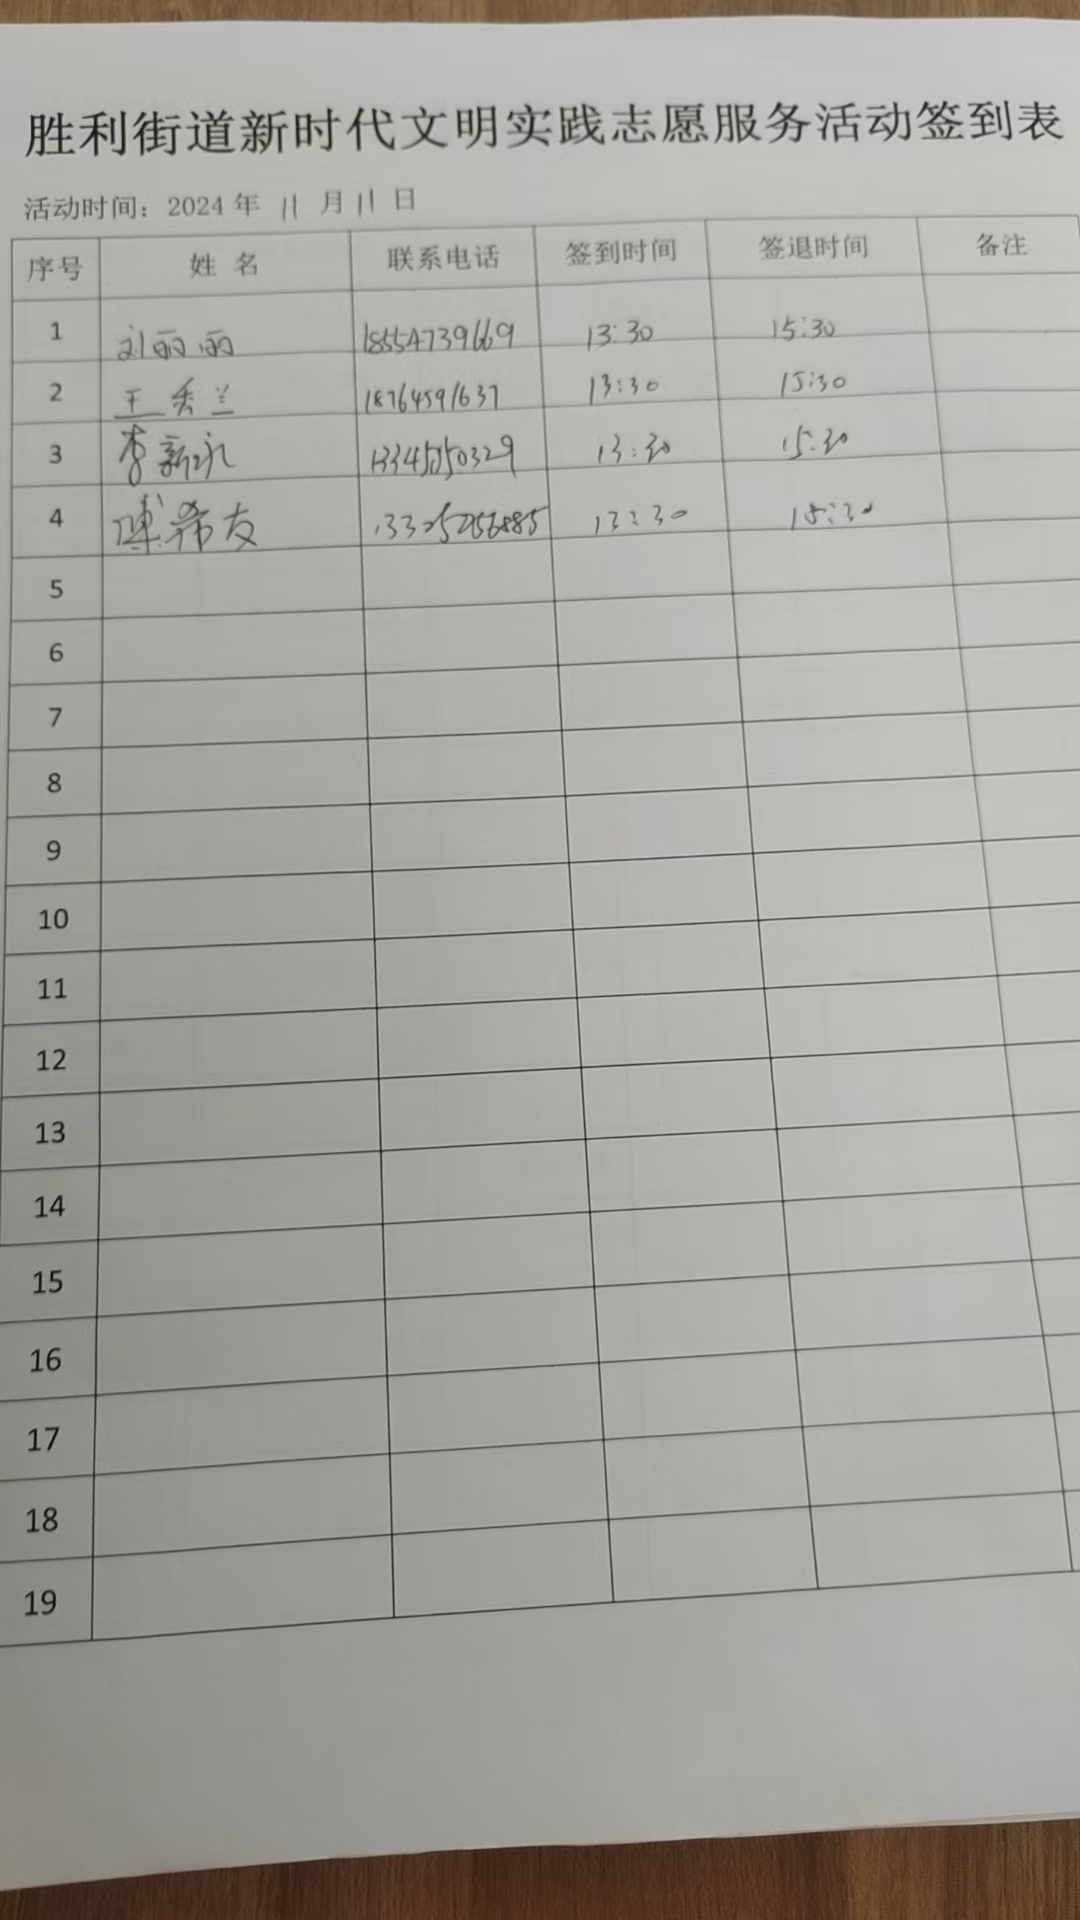 胜利街道新时代文明实践志愿服务活动签到表
活动时间：2024 年 11 月 11 日
序号 姓 名 联系电话 签到时间 签退时间 备注
1 刘丽丽 18554739669 13:30 15:30
2 王秀兰 18764591637 13:30 15:30
3 李新永 13:30 15:30
4 傅希友 13:30 15:30
5
6
7
8
9
10
11
12
13
14
15
16
17
18
19